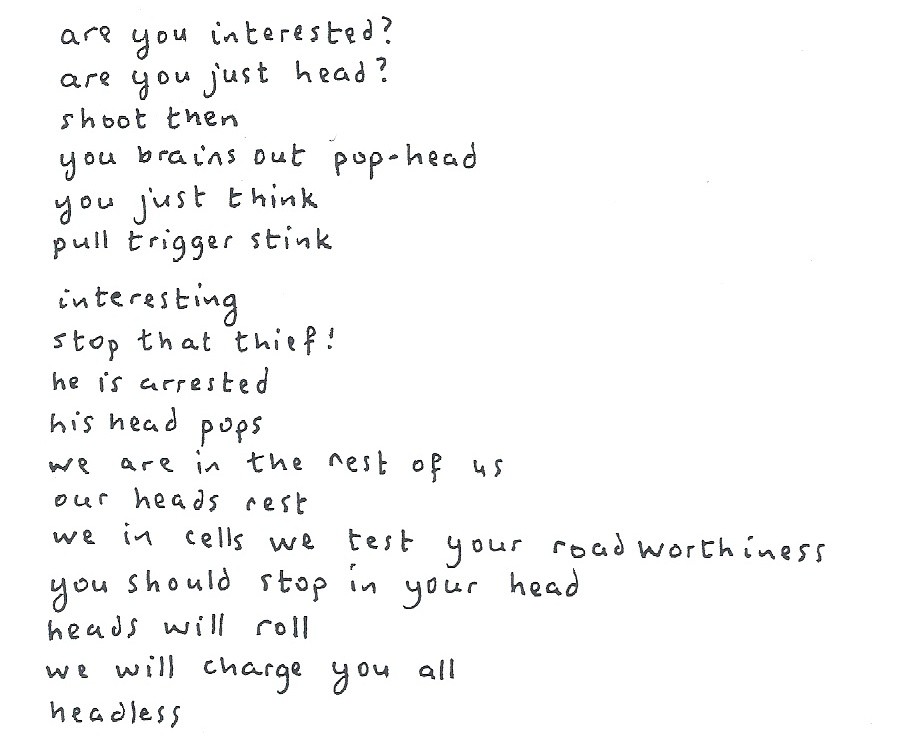 are you interested?
are you just head?
shoot then
you brains out pop-head
you just think
pull trigger stink
interesting
stop that thief!
he is arrested
his head pops
we are in the rest of us
our heads rest
we in cells we test your roadworthiness
you should stop in your head
heads will roll
we will charge you all
headless